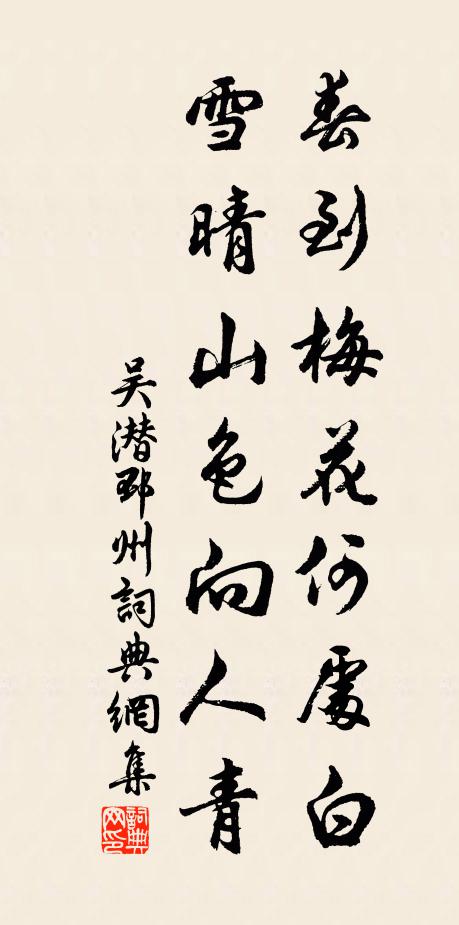 春到梅花何處白
雪晴山色向人青
吴潜郅州詞典網集
詞典网印